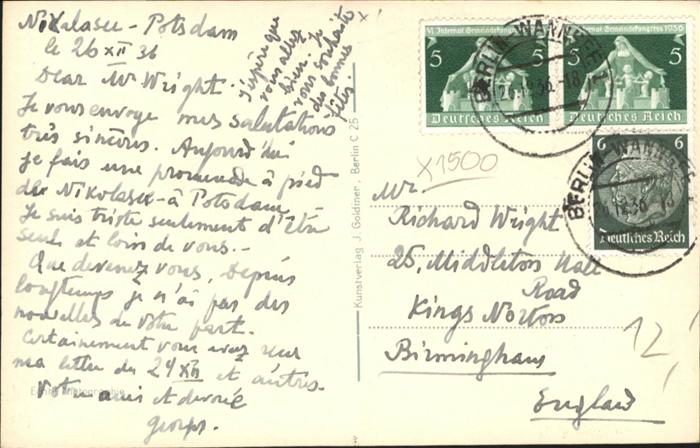 Nikolasee - Potsdam
le 26 XII 36
Dear Mr Wright.
Je vous envoye mes salutations
très sincères. Aujourd'hui
je fais une promenade à pied
de Nikolasee - à Potsdam
Je suis triste seulement d'être
seul et loin de vous. -
Que devenez vous, Depuis
longtemps je n'ai pas des
nouvelles de votre part.
Certainement vous avez reçu
ma lettre du 24 XII et autres.
Votre ami et devoué
J'espère que
vous allez
bien. Je
vous souhaite
des bonnes
fêtes!
Kunstverlag J. Goldiner, Berlin C 25
VI. Internat. Gemeindekongress 1936
5 5
Deutsches Reich
VI. Internat. Gemeindekongress 1936
5 5
Deutsches Reich
6 6
Deutsches Reich
BERLIN-WANNSEE 1
26.12.36.-18
BERLIN-WANNSEE 1
X1500
Mr.
Richard Wright
25, Middleton Hall
Road
Kings Norton
Birmingham
England
12,